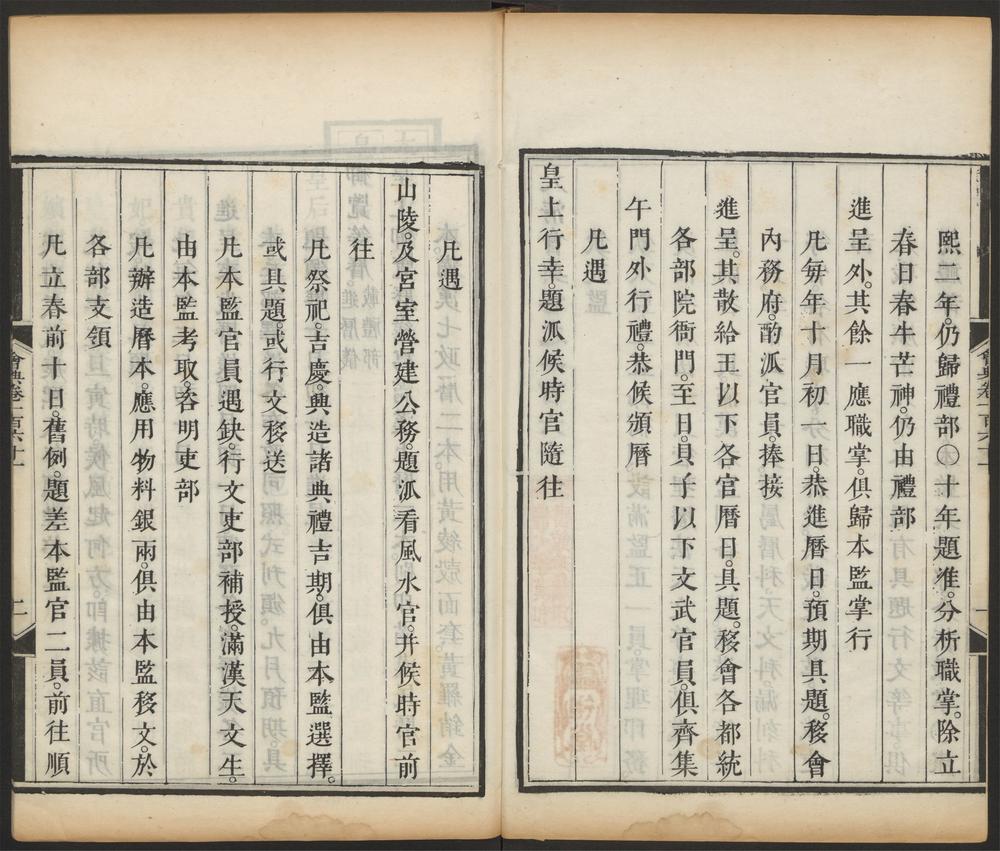 熙二年。仍歸禮部〇十年題准。分析職掌。除立
春日春牛芒神。仍由禮部
進呈外。其餘一應職掌。俱歸本監掌行
凡每年十月初一日。恭進曆日。預期具題。移會
內務府。酌派官員。捧接
進呈。其散給王以下各官曆日。具題。移會各都統
各部院衙門。至日。貝子以下文武官員。俱齊集
午門外行禮。恭候頒曆
凡遇
皇上行幸。題派候時官隨往
凡遇
山陵。及宮室營建公務。題派看風水官。并候時官前
往
凡祭祀。吉慶。興造諸典禮吉期。俱由本監選擇。
或具題。或行文移送
凡本監官員遇缺。行文吏部補授。滿漢天文生。
由本監考取。咨明吏部
凡辦造曆本。應用物料銀兩。俱由本監移文。於
各部支領
凡立春前十日。舊例。題差本監官二員。前往順
會典卷一百六十一
二